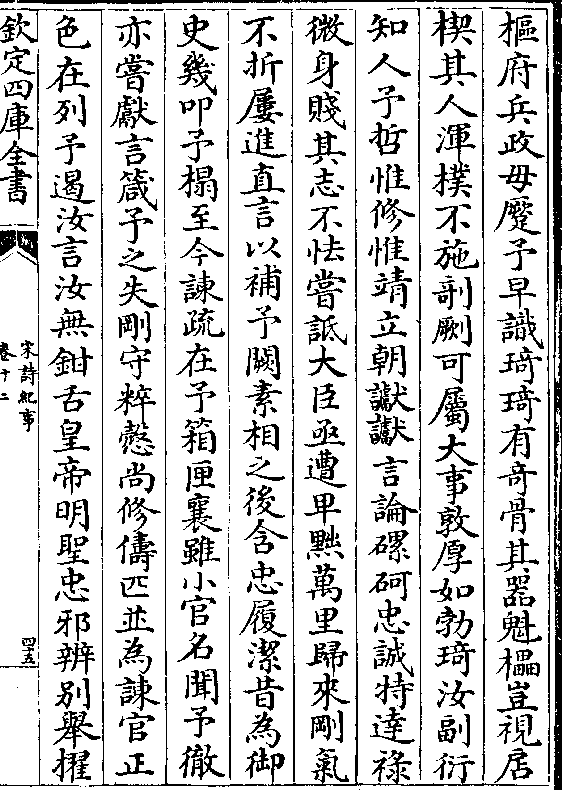 樞府兵政毋蹷予早識琦琦有奇骨其器魁櫑豈視扂
楔其人渾樸不施剞劂可屬大事敦厚如勃琦汝副衍
知人予哲惟修惟靖立朝讞讞言論磥砢忠誠特達祿
微身賤其志不怯嘗詆大臣亟遭卑黜萬里歸來剛氣
不折屢進直言以補予闕素相之後含忠履潔昔為御
史幾叩予榻至今諫疏在予箱匣襄雖小官名聞予徹
亦嘗獻言箴予之失剛守粹慤尚修儔匹並為諫官正
色在列予遏汝言汝無鉗舌皇帝明聖忠邪辨別舉擢
欽定四庫全書
宋詩紀事
卷十二
四十五